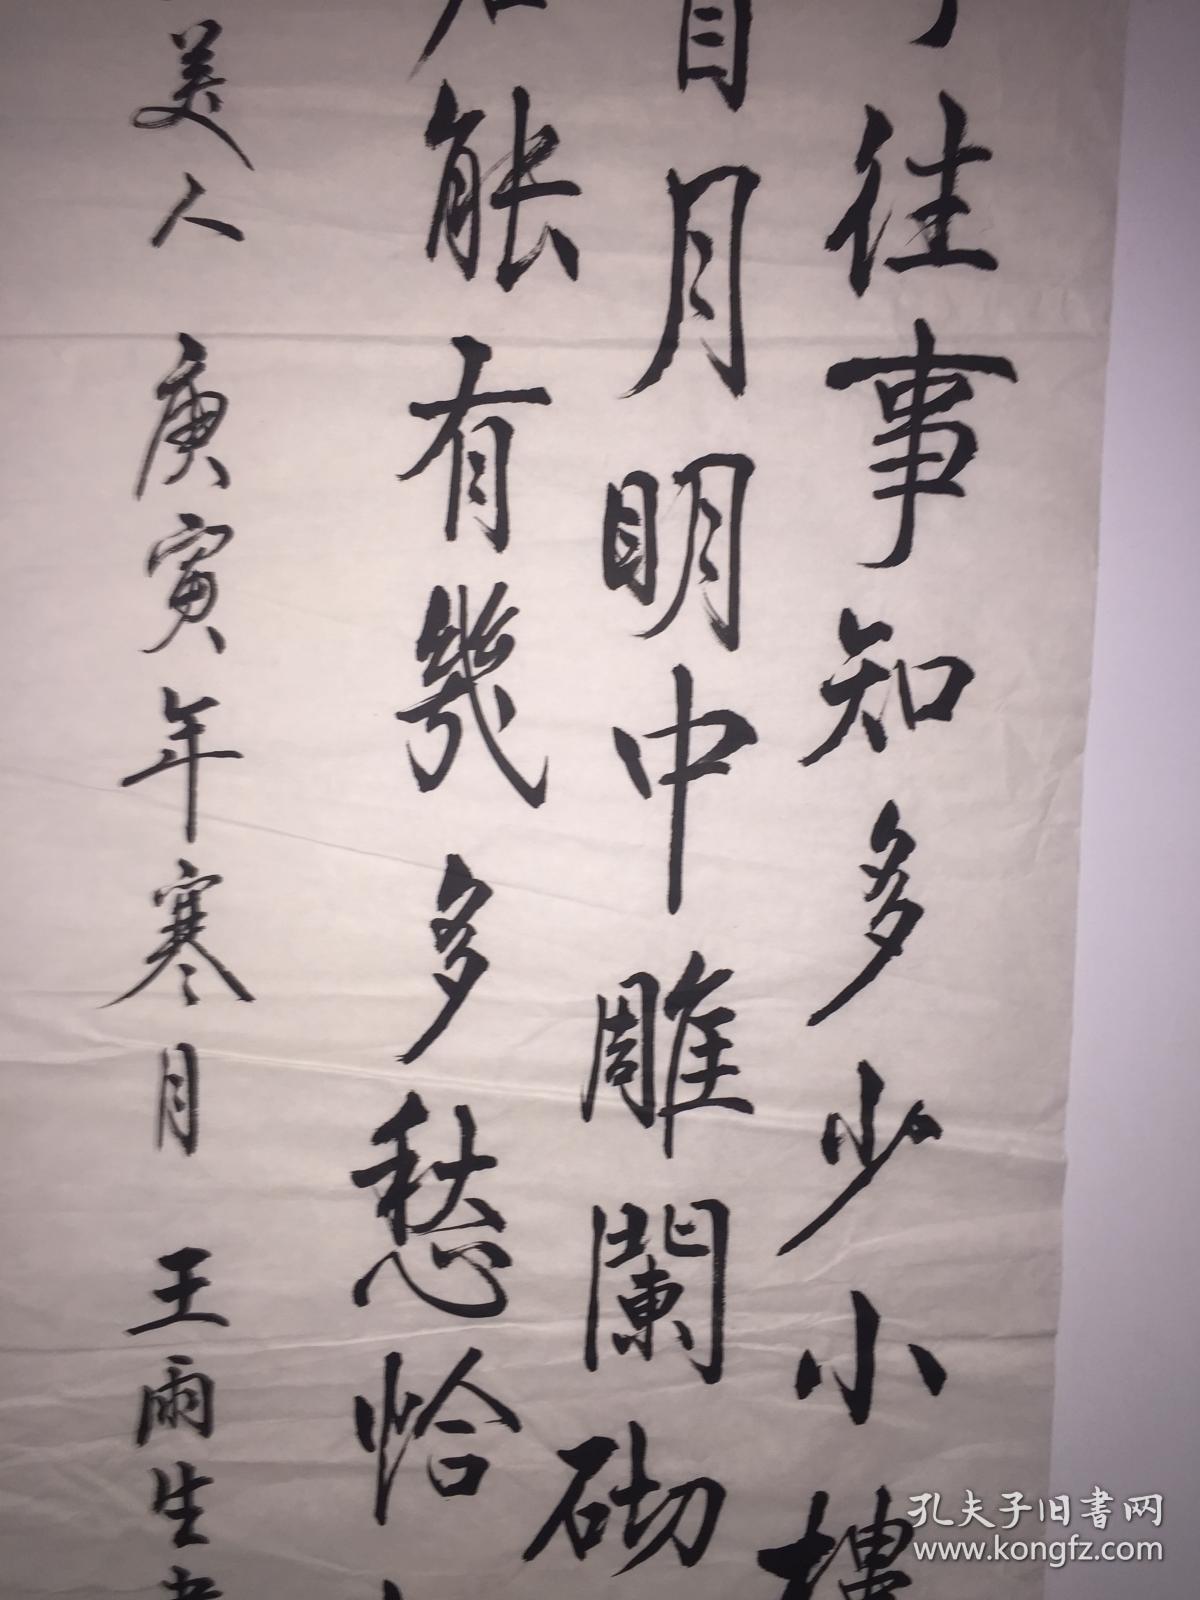 往事知多少小樓
首月明中雕闌砌
能有幾多愁恰
美人 庚寅年寒月 王雨生
孔夫子旧書网
www.kongfz.com